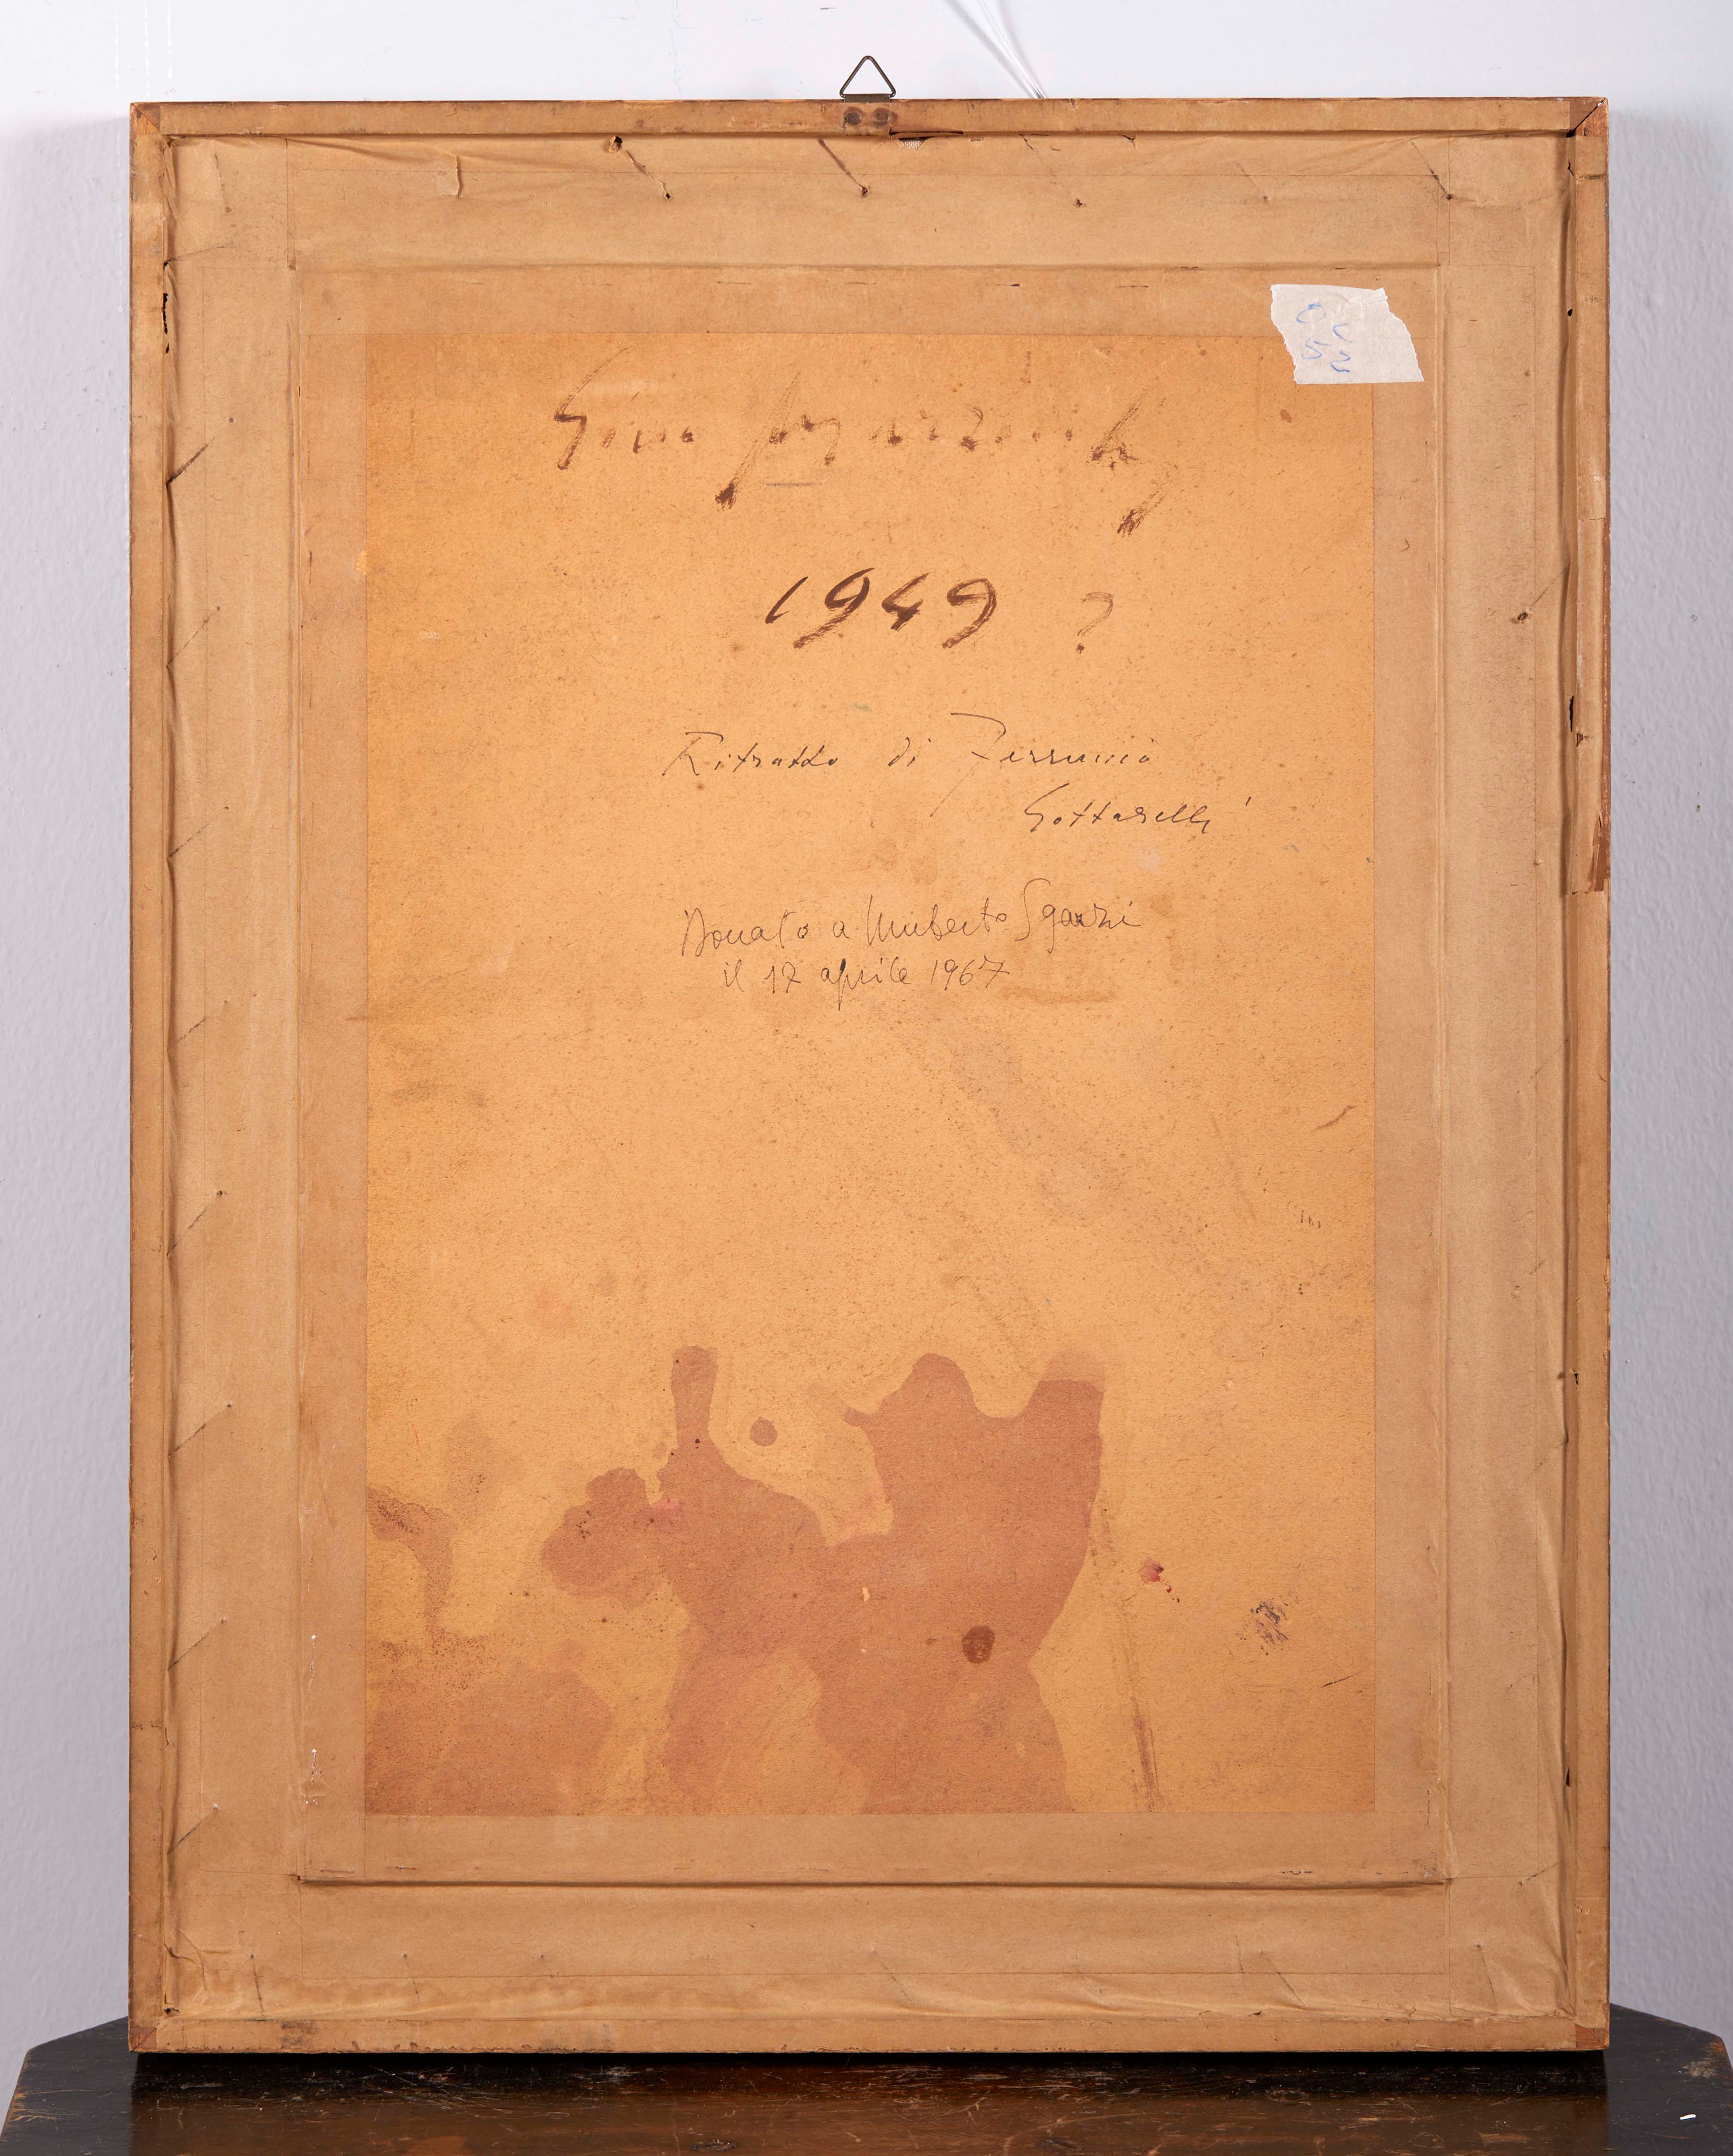 Gino Marzocchi
1949 ?
Ritratto di Ferruccio
Gottarelli
Donato a Umberto Sgarzi
il 17 aprile 1967